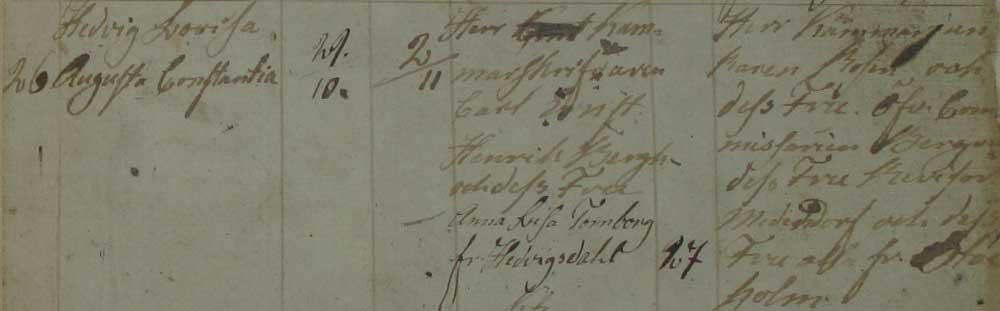 Hedvig Lovisa
26 Augusta Constantia
29.
10.
2
11
Herr Kam-
marskrifvaren
Carl Ernst
Henrik Bergh
och dess Fru
Anna Lisa Tornborg
fr. Hedvigsdahl
27
Herr Kammarjun
karen Rosin och
dess Fru. Öfv. Com
missarien Berg
dess Fru Revisor
och dess
Fru alla fr. Stoc
holm